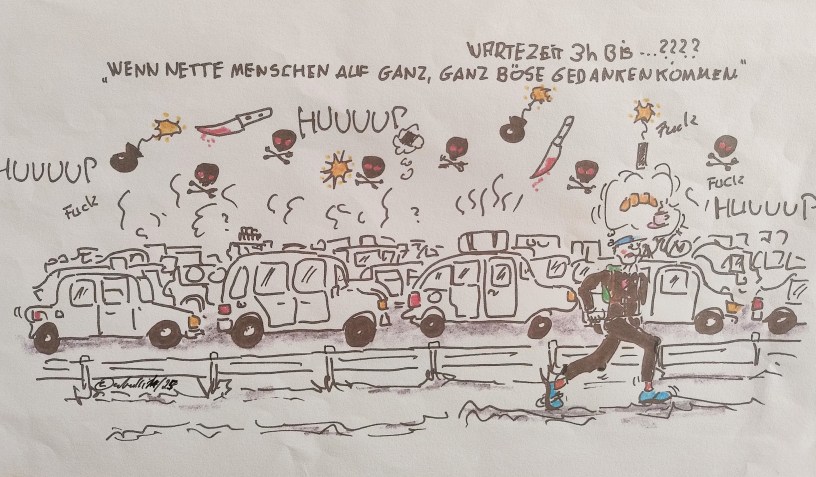 WARTEZEIT 3h BiS ...????
„WENN NETTE MENSCHEN AUF GANZ, GANZ BÖSE GEDANKEN KOMMEN"
HUUUUP
Fuck
HUUUUP
Fuck
HUUUUP
Fuck
?
?